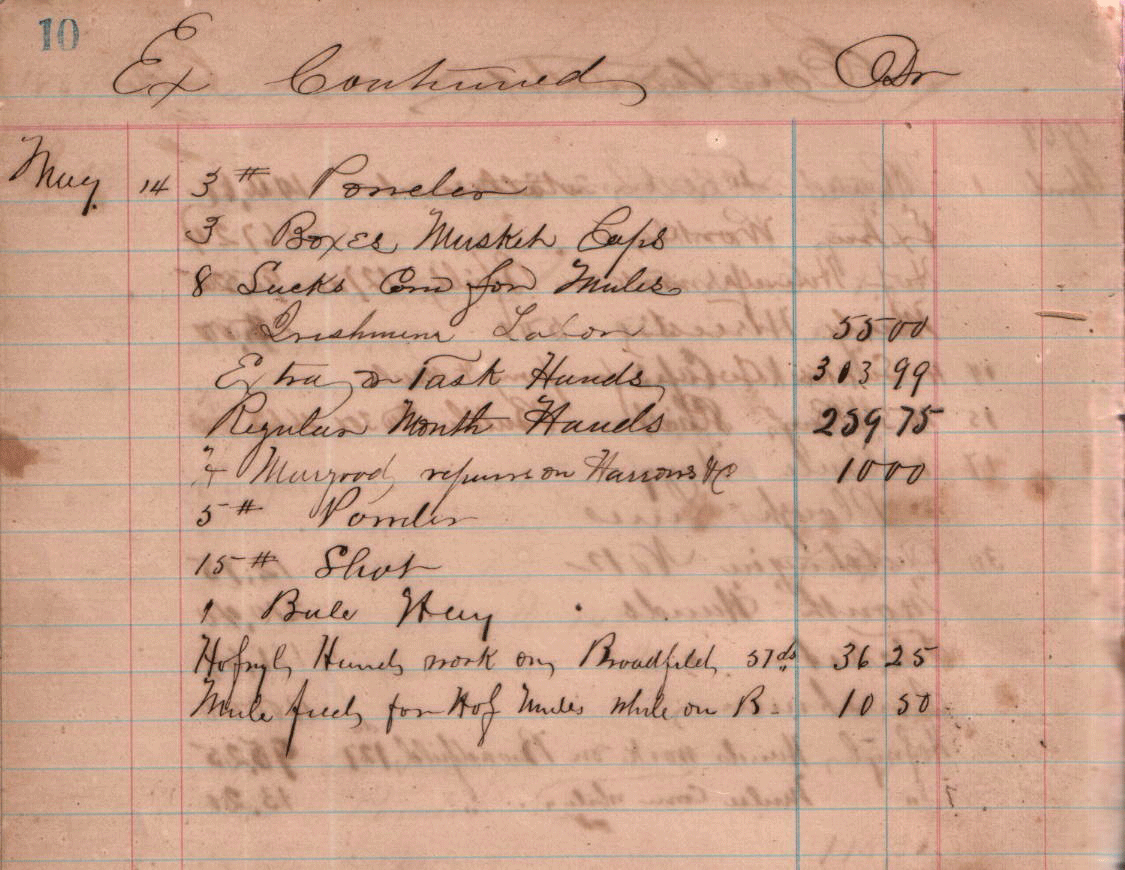 10
Ex Continued Dr
May 14 3 # Powder
3 Boxes Musket Caps
8 Sacks Corn for Mules
Irishmens Labor 55 00
Extra or Task Hands 313 99
Regular Month Hands 259 75
repairs on Harrows &c 10 00
5 # Powder
15 # Shot
1 Bale Hay
Hands work on Broadfield 57 ds 36 25
Mule feed for Hof Mules while on B. 10 50